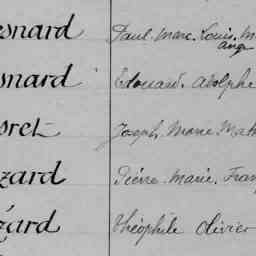 esnard Paul. Marc. Louis. M
ange
snard Edouard. Adolphe
oret Joseph Marie Math
zard Pierre. Marie. Fran
zard Théophile Olivier